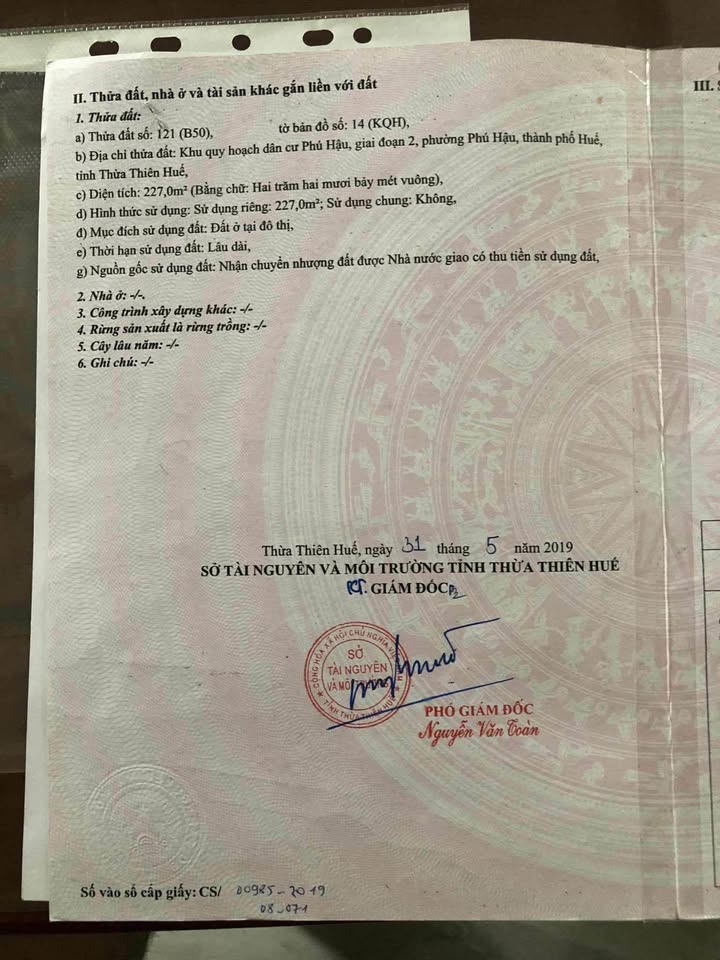 II. Thửa đất, nhà ở và tài sản khác gắn liền với đất
III. S
1. Thửa đất:
a) Thửa đất số: 121 (B50), tờ bản đồ số: 14 (KQH),
b) Địa chỉ thửa đất: Khu quy hoạch dân cư Phú Hậu, giai đoạn 2, phường Phú Hậu, thành phố Huế,
tỉnh Thừa Thiên Huế,
c) Diện tích: 227,0m² (Bằng chữ: Hai trăm hai mươi bảy mét vuông),
d) Hình thức sử dụng: Sử dụng riêng: 227,0m²; Sử dụng chung: Không,
đ) Mục đích sử dụng đất: Đất ở tại đô thị,
e) Thời hạn sử dụng đất: Lâu dài,
g) Nguồn gốc sử dụng đất: Nhận chuyển nhượng đất được Nhà nước giao có thu tiền sử dụng đất,
2. Nhà ở: -/-.
3. Công trình xây dựng khác: -/-
4. Rừng sản xuất là rừng trồng: -/-
5. Cây lâu năm: -/-
6. Ghi chú: -/-
Thừa Thiên Huế, ngày 31 tháng 5 năm 2019
SỞ TÀI NGUYÊN VÀ MÔI TRƯỜNG TỈNH THỪA THIÊN HUẾ
KT. GIÁM ĐỐC
CỘNG HÒA XÃ HỘI CHỦ NGHĨA VIỆT
SỞ
TÀI NGUYÊN
VÀ MÔI
TỈNH THỪA THIÊN HUẾ
PHÓ GIÁM ĐỐC
Nguyễn Văn Toàn
Số vào sổ cấp giấy: CS/ 00985-2019
08-071